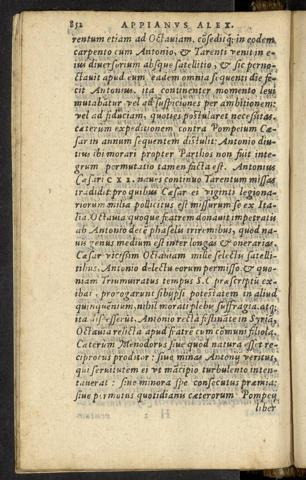 852 APPIANVS ALEX.
rentum etiam ad Octauiam. cōsedit q́; in eodem
carpento cum Antonio, & Tarenti venit in e-
ius diuersorium absque satellitio, & sic perno-
ctauit apud eum. eadem omnia sequenti die fe-
cit Antonius. ita continenter momento leui
mutabatur vel ad suspiciones per ambitionem:
vel ad fiduciam, quoties postularet necessitas.
cæterum expeditionem contra Pompeium Cæ
sar in annum sequentem distulit: Antonio diu-
tius ibi morari propter Parthos non fuit inte-
grum permutatio tamen facta est. Antonius
Cæsari CXX. naues continuo Tarentum missas
tradidit. pro quibus Cæsar ei viginti legiona-
riorum milia pollicitus est missurum se ex Ita-
lia. Octauia quoque fratrem donauit impetratis
ab Antonio decē phaselis triremibus, quod na-
uis genus medium est inter longas & onerarias.
Cæsar vicissim Octauiam mille selectis satelli-
tibus. Antonio delectu eorum permisso. & quo-
niam Triumuiratus tempus S.C. præscriptū ex-
ibat, prorogarunt sibijpsi potestatem in aliud
quinquenium. nihil morati plebis suffragia. atq,
ita discesserūt. Antonio recta festinate in Syriā,
Octauia relicta apud fratrē cum cōmuni filiola.
Cæterum Menodorus siue quod natura esset re-
ciprocus proditor: siue minas Antonij veritus,
qui seruitutem ei vt mācipio turbulento inten-
tauerat: siue minora spe consecutus præmia:
siue permotus quotidianis cæterorum Pompeij
liber